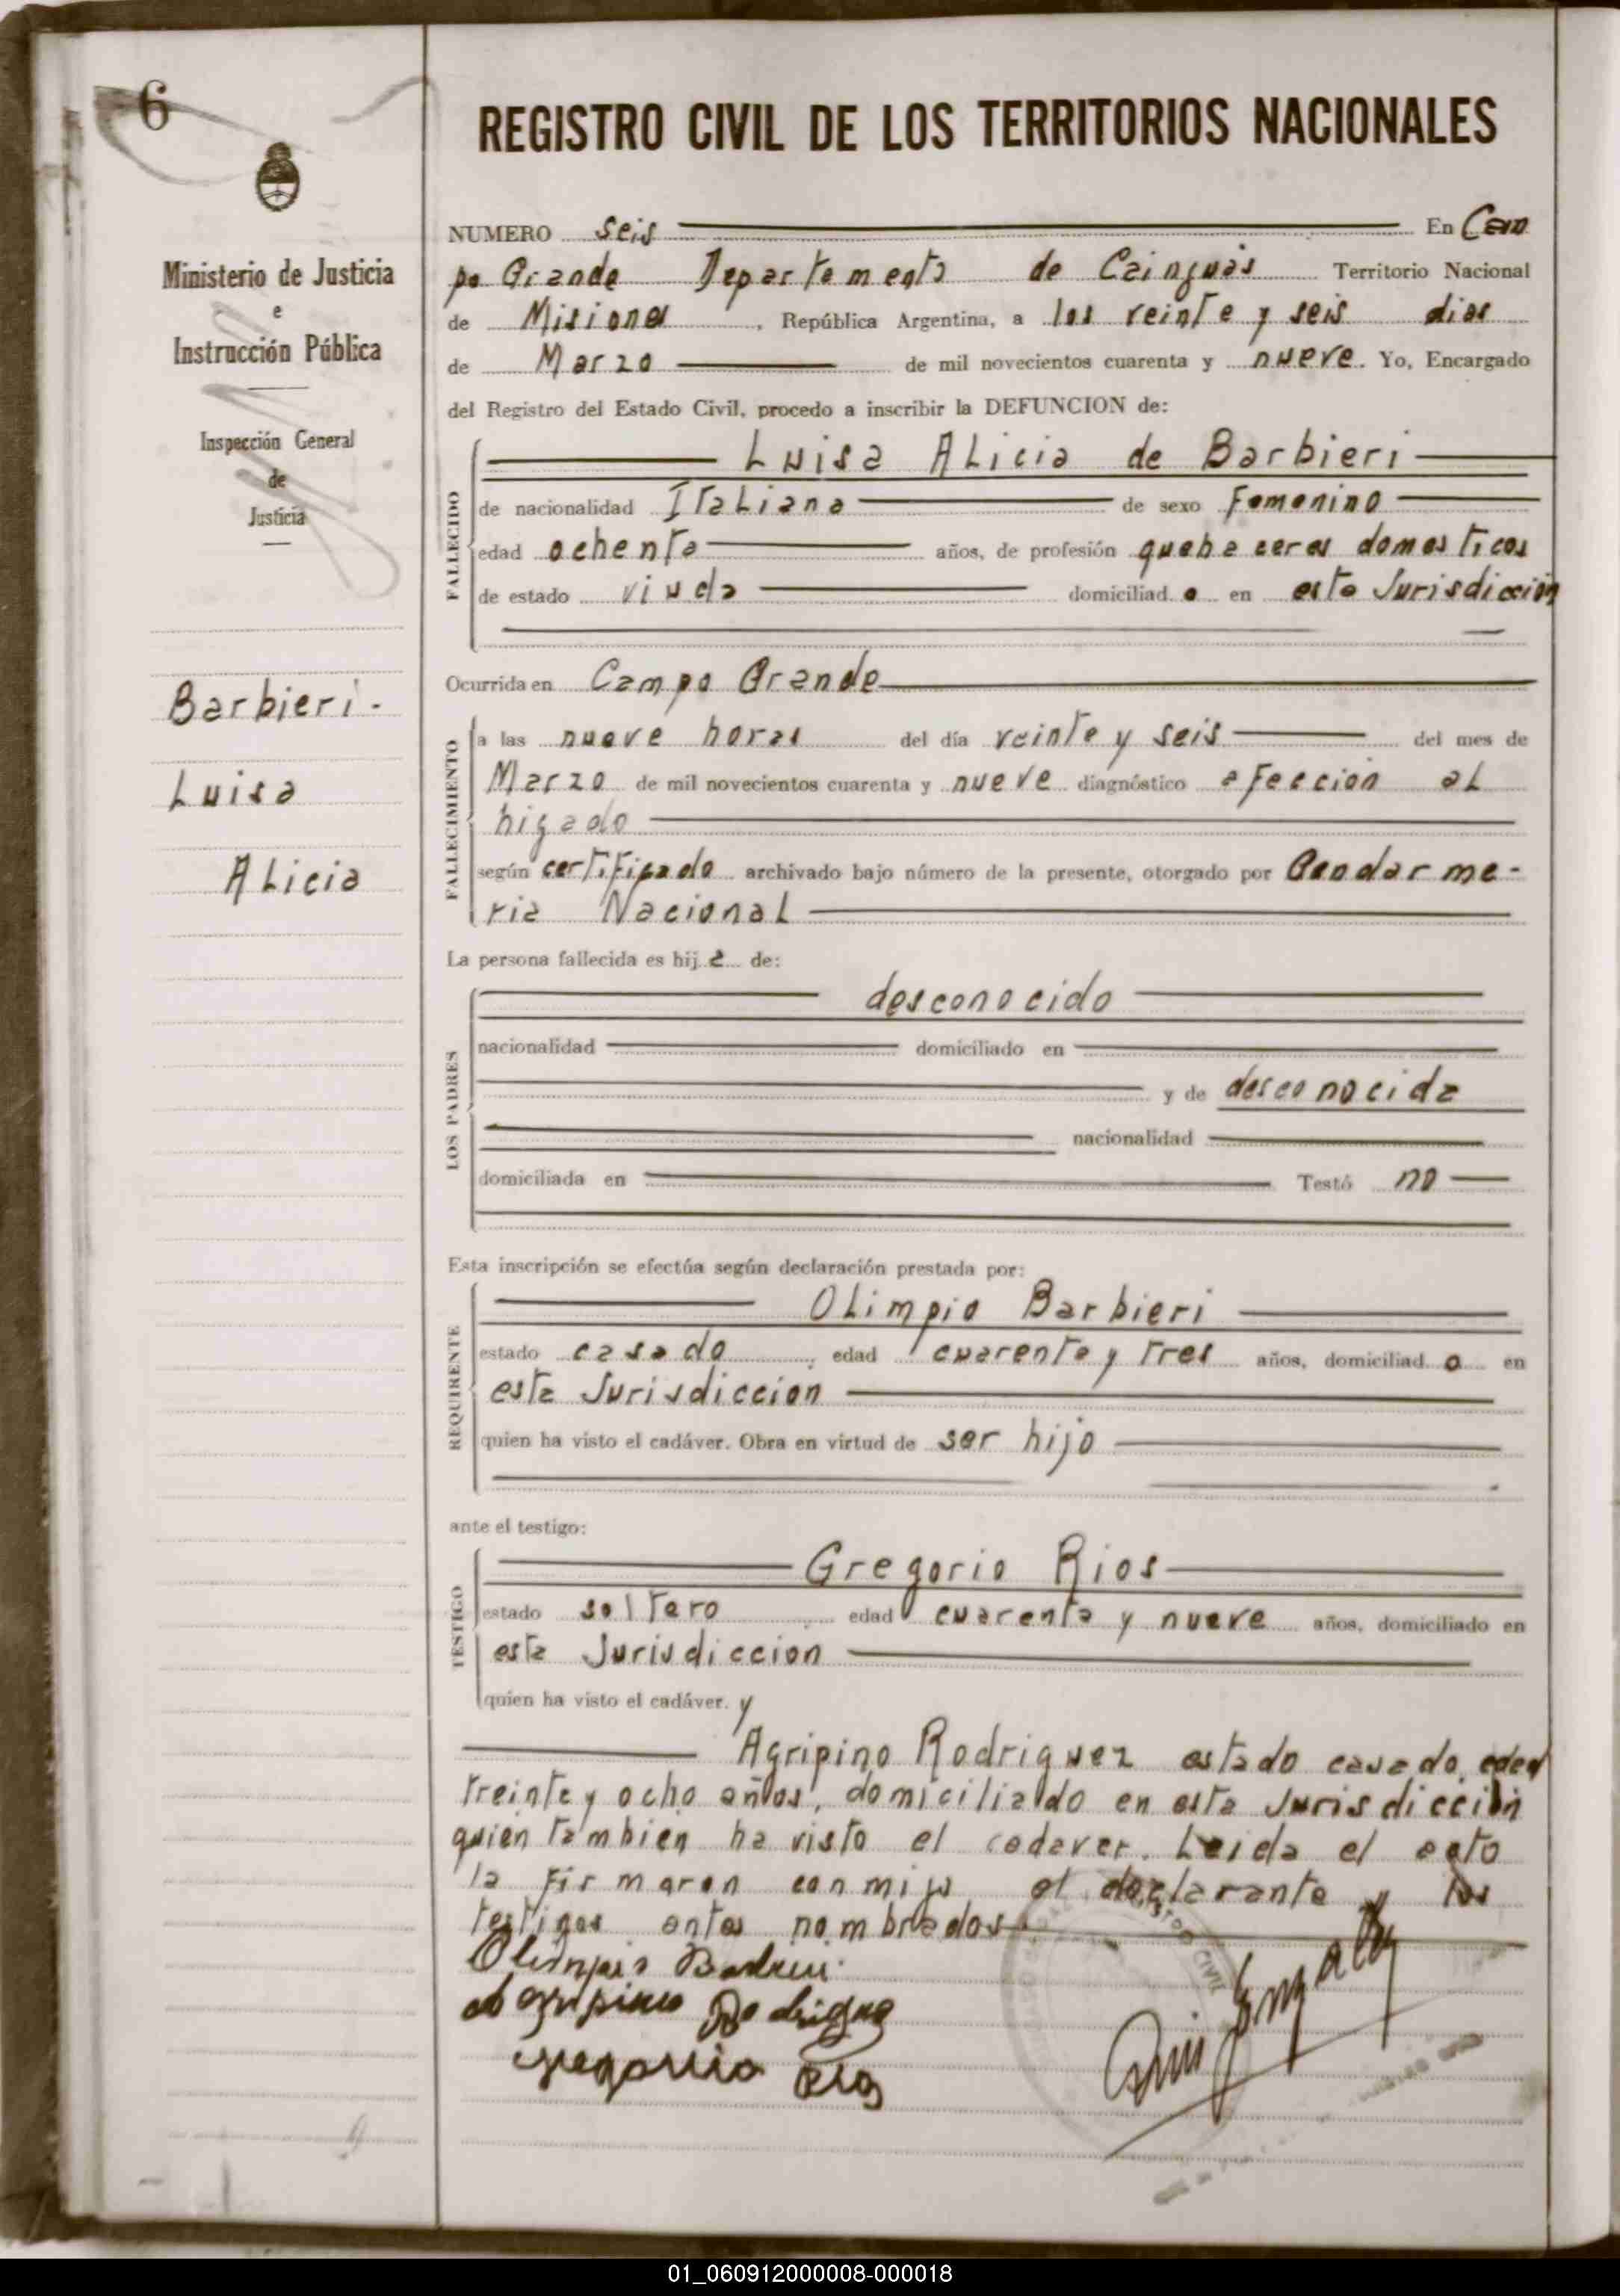 6
REGISTRO CIVIL DE LOS TERRITORIOS NACIONALES
Ministerio de Justicia
e
Instrucción Pública
Inspección General
de
Justicia
Barbieri.
Luisa
Alicia
NUMERO seis En Cam
po Grande Departamento de Cainguás Territorio Nacional
de Misiones, República Argentina, a los veinte y seis dias
de Marzo de mil novecientos cuarenta y nueve. Yo, Encargado
del Registro del Estado Civil, procedo a inscribir la DEFUNCION de:
FALLECIDO
Luisa Alicia de Barbieri
de nacionalidad Italiana de sexo Femenino
edad ochenta años, de profesión quehaceres domesticos
de estado viuda domiciliad a en esta Jurisdicción
Ocurrida en Campo Grande
FALLECIMIENTO
a las nueve horas del día veinte y seis del mes de
Marzo de mil novecientos cuarenta y nueve diagnóstico afección al
higado
según certificado archivado bajo número de la presente, otorgado por Gendarme-
ria Nacional
La persona fallecida es hij a de:
LOS PADRES
desconocido
nacionalidad domiciliado en
y de desconocida
nacionalidad
domiciliada en Testó no
Esta inscripción se efectúa según declaración prestada por:
REQUIRENTE
Olimpio Barbieri
estado casado, edad cuarenta y tres años, domiciliad o en
esta Jurisdiccion
quien ha visto el cadáver. Obra en virtud de ser hijo
ante el testigo:
TESTIGO
Gregorio Rios
estado soltero edad cuarenta y nueve años, domiciliado en
esta Jurisdiccion
quien ha visto el cadáver. y
Agripino Rodriguez estado casado, edad
treinta y ocho años, domiciliado en esta Jurisdicción
quien tambien ha visto el cadaver. Leida el acta
la firmaron conmigo el declarante y los
testigos antes nombrados
Olimpio Barbieri
Agripino Rodrigue
gregorio Rios
CIVIL
01_060912000008-000018